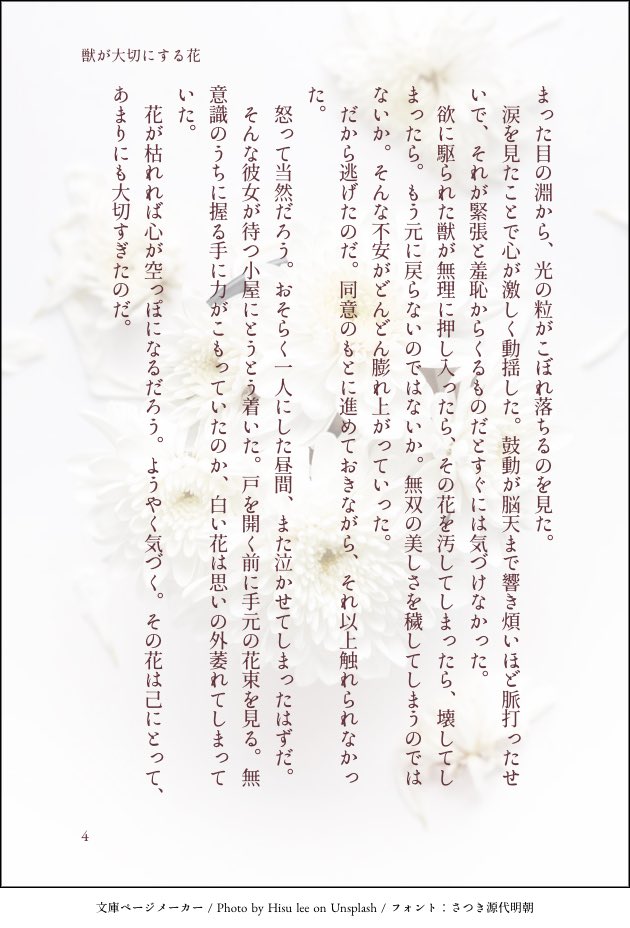 獣が大切にする花
まった目の淵から、光の粒がこぼれ落ちるのを見た。
涙を見たことで心が激しく動揺した。鼓動が脳天まで響き煩いほど脈打ったせ
いで、それが緊張と羞恥からくるものだとすぐには気づけなかった。
欲に駆られた獣が無理に押し入ったら、その花を汚してしまったら、壊してし
まったら。もう元に戻らないのではないか。無双の美しさを穢してしまうのでは
ないか。そんな不安がどんどん膨れ上がっていった。
だから逃げたのだ。同意のもとに進めておきながら、それ以上触れられなかっ
た。
怒って当然だろう。おそらく一人にした昼間、また泣かせてしまったはずだ。
そんな彼女が待つ小屋にとうとう着いた。戸を開く前に手元の花束を見る。無
意識のうちに握る手に力がこもっていたのか、白い花は思いの外萎れてしまって
いた。
花が枯れれば心が空っぽになるだろう。ようやく気づく。その花は己にとって、
あまりにも大切すぎたのだ。
4
文庫ページメーカー / Photo by Hisu lee on Unsplash / フォント：さつき源代明朝